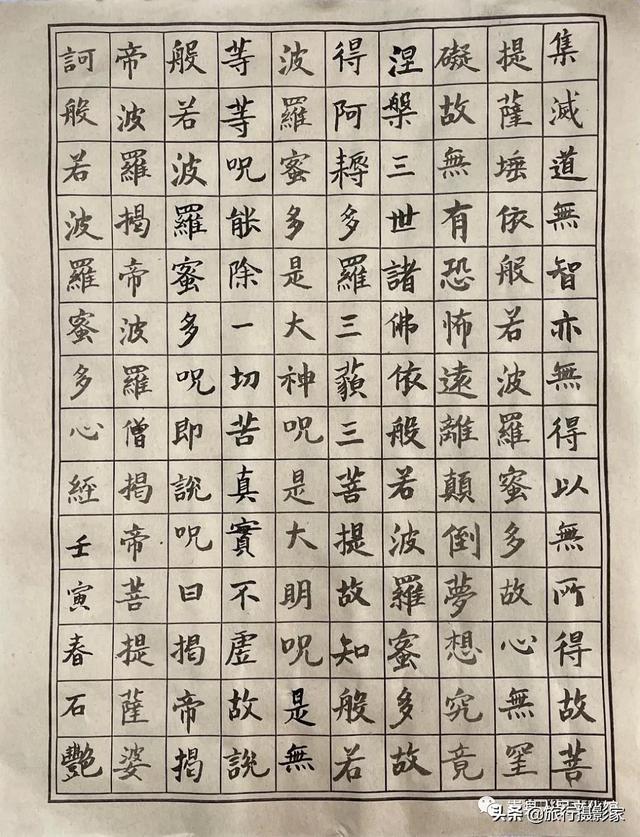 集滅道無智亦無得以無所得故菩
提薩埵依般若波羅蜜多故心無罣
礙故無有恐怖遠離顛倒夢想究竟
涅槃三世諸佛依般若波羅蜜多故
得阿耨多羅三藐三菩提故知般若
波羅蜜多是大神呪是大明呪是無
等等呪能除一切苦真實不虛故說
般若波羅蜜多呪即說呪曰揭帝揭
帝波羅揭帝波羅僧揭帝菩提薩婆
訶般若波羅蜜多心經壬寅春石艷
头条@旅行摄影家